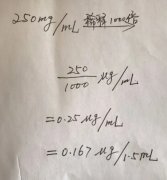 250mg/mL 稀释1000倍
250/1000 μg/mL
=0.25 μg/mL
=0.167 μg/1.5mL